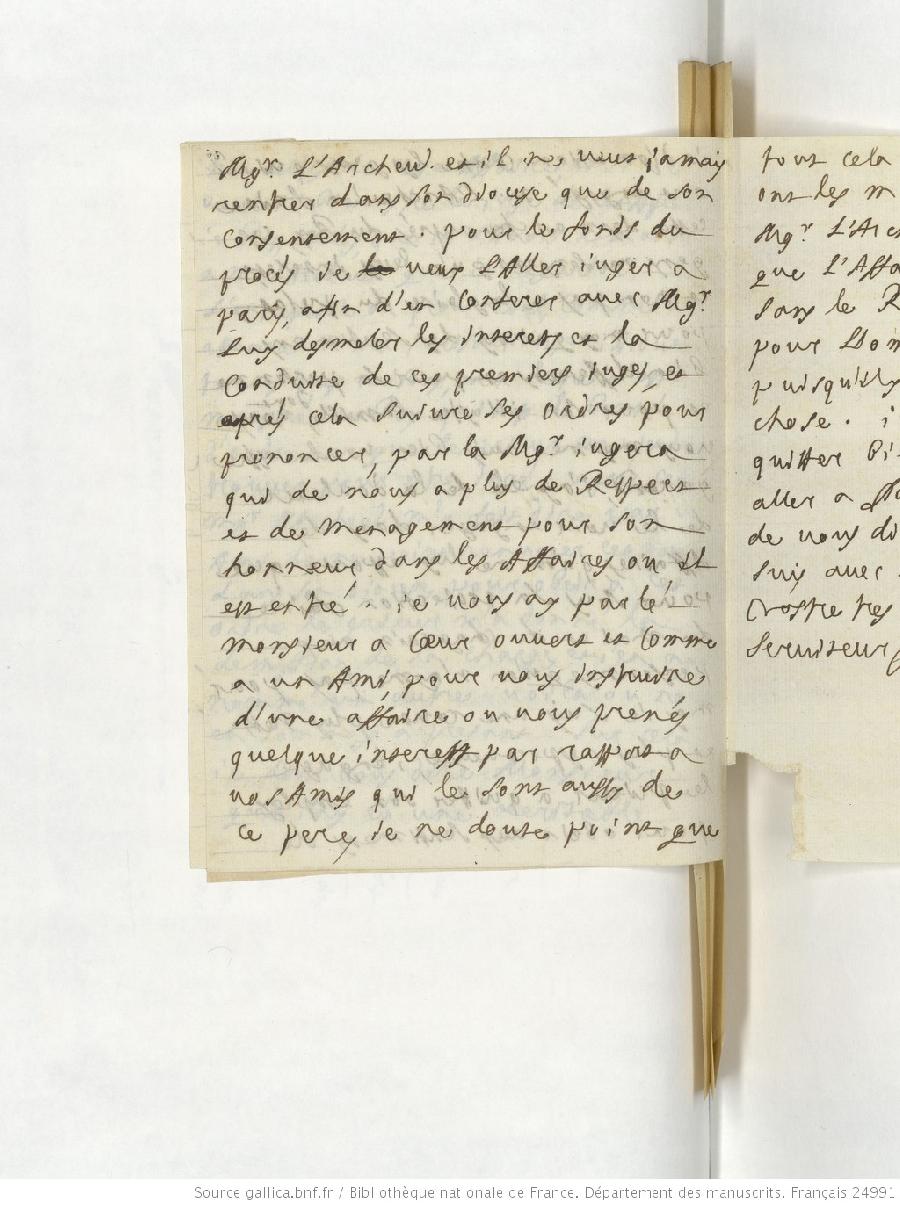 Mgr. L'Archev. et il ne veut jamais
rentrer dans son diocese que de son
consentement. pour le fonds du
procés je veux L'Aller juger a
paris, afin d'en conferer avec Mgr.
Luy desmeler les interets et la
conduite de ces premiers juges, et
aprés cela suivre ses ordres pour
prononcer, par la Mgr. jugera
qui de nous a plus de Respect
et de menagement pour son
honneur dans les Affaires ou il
est entré. je vous ay parlé
monsieur a cœur ouvert et comme
a un Ami, pour vous instruire
d'une affaire ou vous prenés
quelque interest par rapport a
vos Amis qui le sont aussy de
ce pere, je ne doute point que
tout cela
ont les m
Mgr. L'Arch
que L'Affa
dans le R
pour
puisqu'ils
chose. i
quitter
aller a
de vous di
suis avec
Vostre tres
serviteur
Source gallica.bnf.fr / Bibliothèque nationale de France. Département des manuscrits. Français 24991